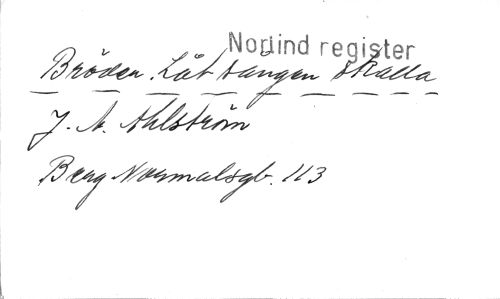 Norlind register
Bröder. Låt sången skalla
J. N. Ahlström
Berg Normalsgb. 113